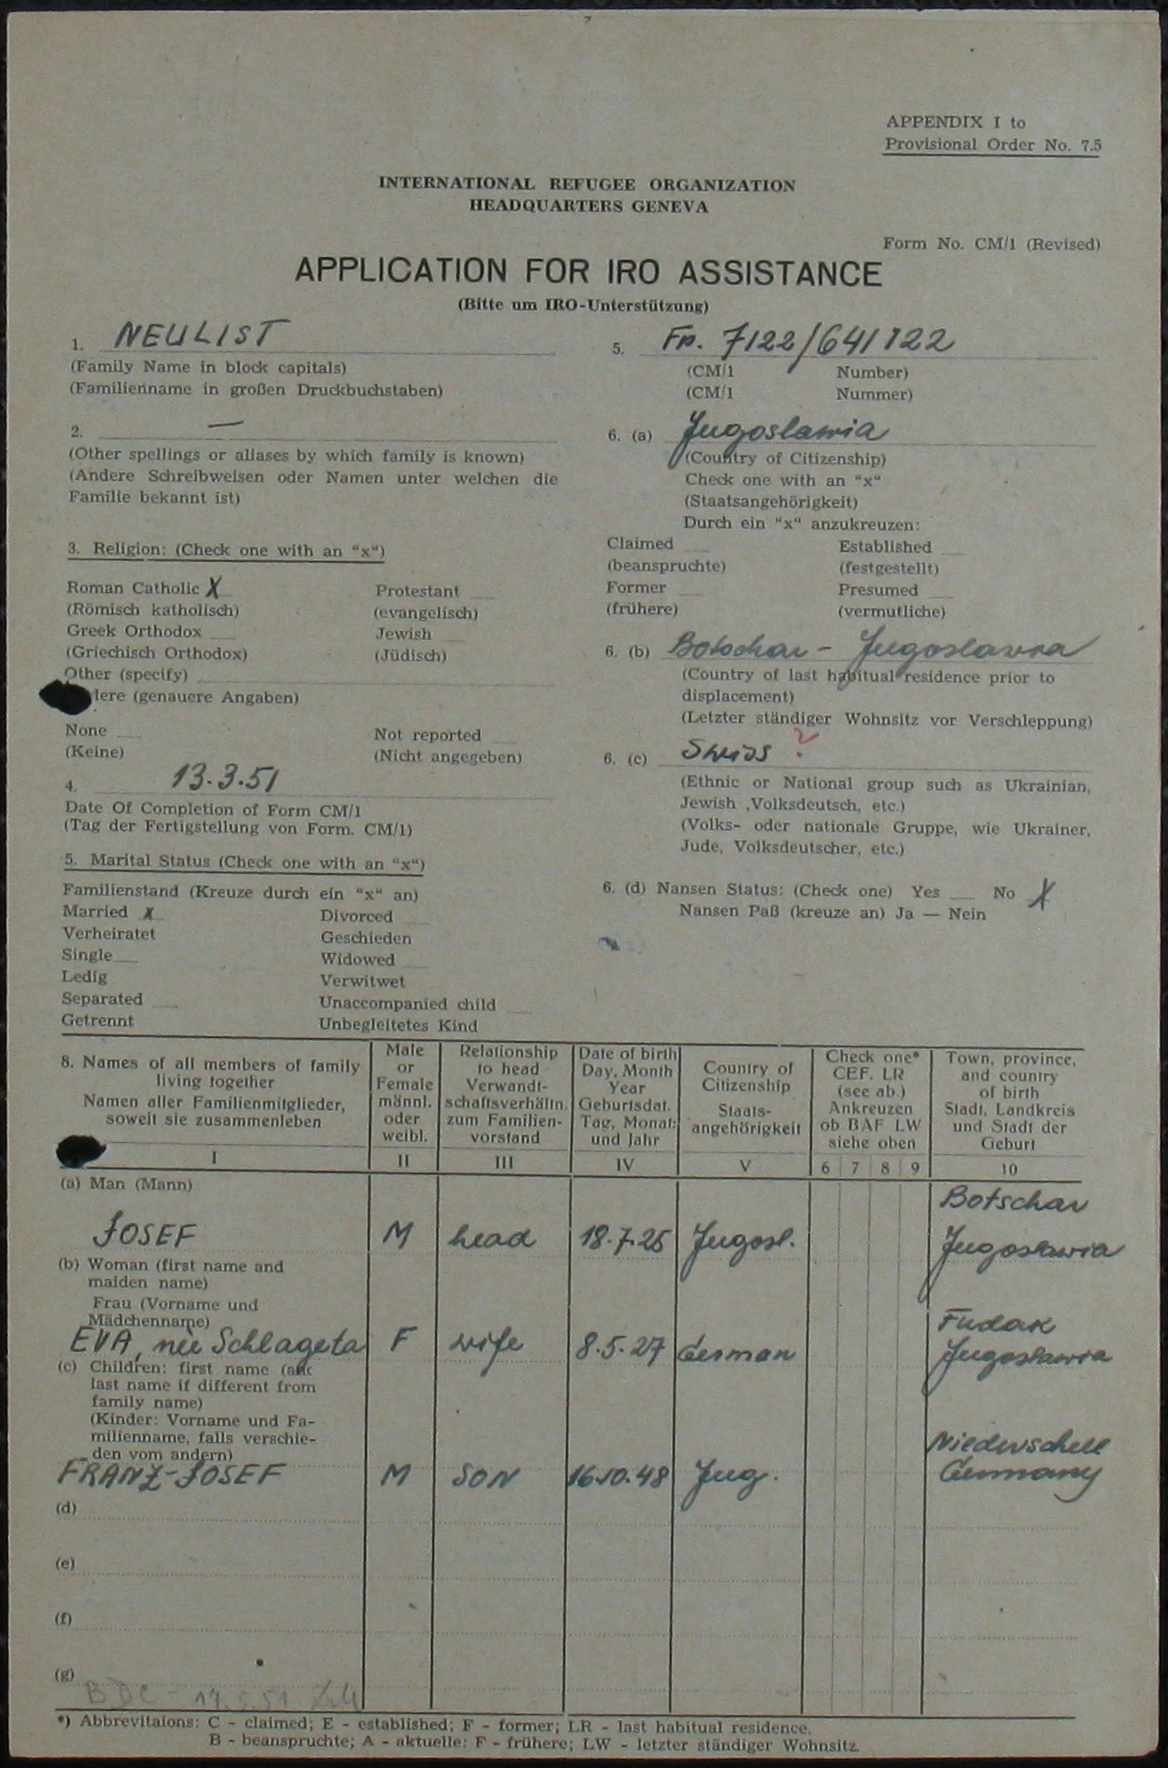 APPENDIX I to
Provisional Order No. 7.5
INTERNATIONAL REFUGEE ORGANIZATION
HEADQUARTERS GENEVA
Form No. CM/1 (Revised)
APPLICATION FOR IRO ASSISTANCE
(Bitte um IRO-Unterstützung)
1. NEULIST
(Family Name in block capitals)
(Familienname in großen Druckbuchstaben)
2. —
(Other spellings or aliases by which family is known)
(Andere Schreibweisen oder Namen unter welchen die
Familie bekannt ist)
3. Religion: (Check one with an "x")
Roman Catholic X Protestant
(Römisch katholisch) (evangelisch)
Greek Orthodox Jewish
(Griechisch Orthodox) (Jüdisch)
Other (specify)
dere (genauere Angaben)
None Not reported
(Keine) (Nicht angegeben)
4. 13.3.51
Date Of Completion of Form CM/1
(Tag der Fertigstellung von Form. CM/1)
5. Marital Status (Check one with an "x")
Familienstand (Kreuze durch ein "x" an)
Married X Divorced
Verheiratet Geschieden
Single Widowed
Ledig Verwitwet
Separated Unaccompanied child
Getrennt Unbegleitetes Kind
5. 7122/641122
(CM/1 Number)
(CM/1 Nummer)
6. (a) Jugoslawia
(Country of Citizenship)
Check one with an "x"
(Staatsangehörigkeit)
Durch ein "x" anzukreuzen:
Claimed Established
(beanspruchte) (festgestellt)
Former Presumed
(frühere) (vermutliche)
6. (b) Botschar - Jugoslawia
(Country of last habitual residence prior to
displacement)
(Letzter ständiger Wohnsitz vor Verschleppung)
6. (c) Swiss ?
(Ethnic or National group such as Ukrainian,
Jewish ,Volksdeutsch, etc.)
(Volks- oder nationale Gruppe, wie Ukrainer,
Jude, Volksdeutscher, etc.)
6. (d) Nansen Status: (Check one) Yes No X
Nansen Paß (kreuze an) Ja — Nein
8. Names of all members of family
living together
Namen aller Familienmitglieder,
soweit sie zusammenleben
I
Male
or
Female
männl.
oder
weibl.
II
Relationship
to head
Verwandt-
schaftsverhältn.
zum Familien-
vorstand
III
Date of birth
Day, Month
Year
Geburtsdat.
Tag, Monat
und Jahr
IV
Country of
Citizenship
Staats-
angehörigkeit
V
Check one*
CEF. LR
(see ab.)
Ankreuzen
ob BAF LW
siehe oben
6 7 8 9
Town, province,
and country
of birth
Stadt, Landkreis
und Stadt der
Geburt
10
(a) Man (Mann)
JOSEF M head 18.7.25 Jugosl. Botschar
Jugoslawia
(b) Woman (first name and
maiden name)
Frau (Vorname und
Mädchenname)
EVA, née Schlageta F wife 8.5.27 German Fudak
Jugoslawia
(c) Children: first name (and
last name if different from
family name)
(Kinder: Vorname und Fa-
milienname, falls verschie-
den vom andern)
FRANZ-JOSEF M SON 16.10.48 Jug. Niederschell
Germany
(d)
(e)
(f)
(g)
BDC -
*) Abbrevitaions: C - claimed; E - established; F - former; LR - last habitual residence.
B - beanspruchte; A - aktuelle; F - frühere; LW - letzter ständiger Wohnsitz